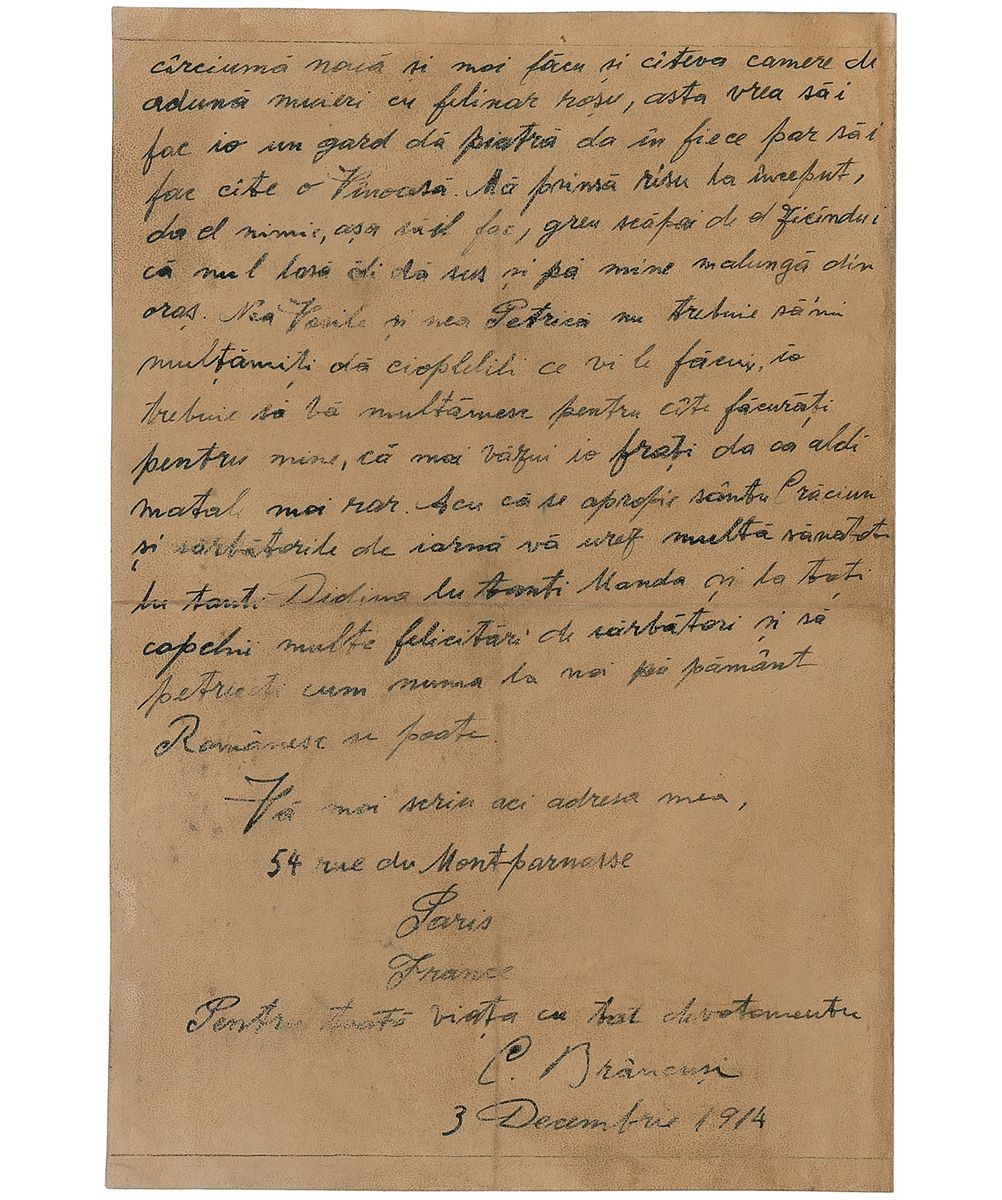 cîrciumă nouă si mai făcu și cîteva camere de
adună muieri cu felinar roșu, asta vrea săi
fac io un gard dă piatră da în fiece par săi
fac cîte o Vinoasă. Mă prinsă risu la început,
da el nimic, așa săil fac, greu scăpai de el zicîndui
că nul lasă ăi dă sus și pă mine malungă din
oraș. Nea Vasile și nea Petrică nu trebuie sămi
mulțămiți dă cioplelili ce vi le făcui, io
trebuie să vă multămesc pentru cîte făcurăți
pentru mine, că mai văzui io frați da ca aldi
matale mai rar. Acu că se apropie sântu Crăciun
și sărbătorile de iarnă vă urez multă sănătate
lu tanti Didina lu tanti Manda și la toți
copchii multe felicitări de sărbători și să
petreceți cum numa la noi pă pământ
Românesc se poate.
Vă mai scriu aci adresa mea,
54 rue du Montparnasse
Paris
France
Pentru toată viața cu tot devotamentu
C. Brâncuși
3 Decembrie 1914